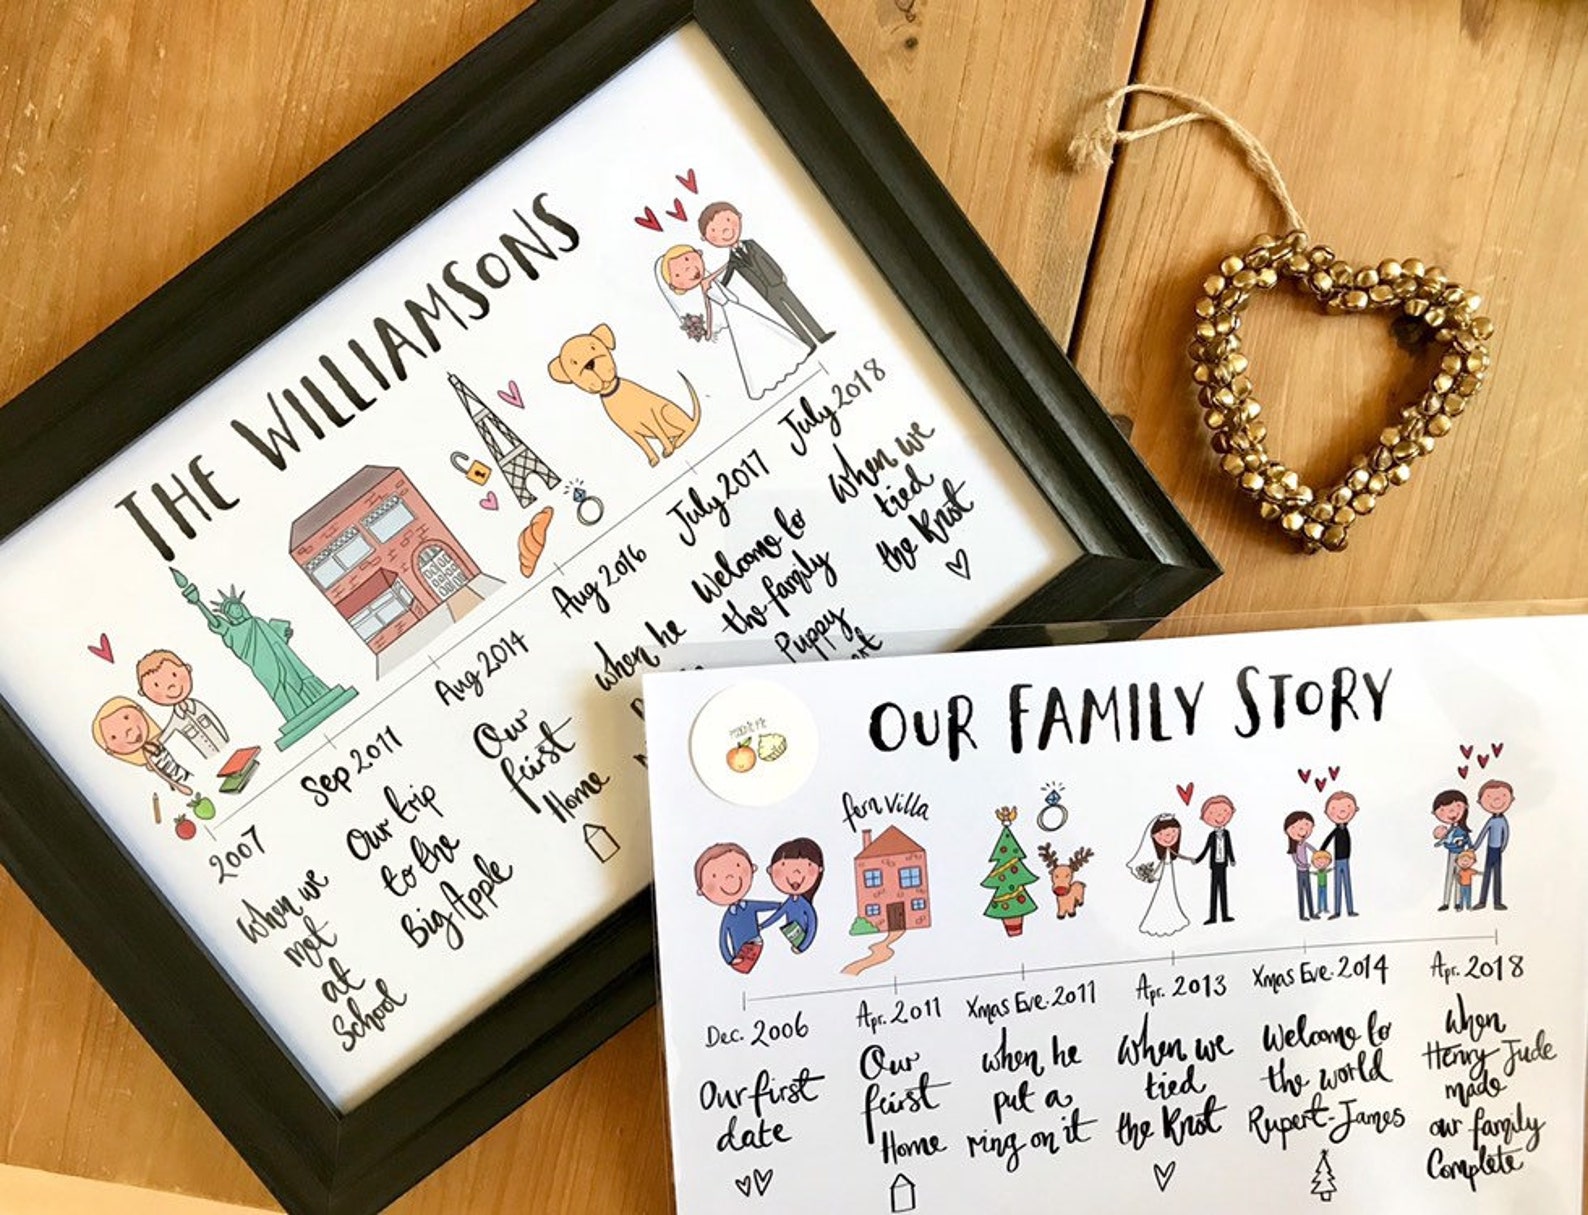 THE WILLIAMSONS
2007
when we
met
at
School
Sep 2011
Our trip
to the
Big Apple
Aug 2014
Our
first
Home
Aug 2016
when he
July 2017
Welcome to
the family
Puppy
July 2018
when we
tied
the Knot
OUR FAMILY STORY
Dec. 2006
Our first
date
fern villa
Apr. 2011
Our
first
Home
Xmas Eve. 2011
when he
put a
ring on it
Apr. 2013
when we
tied
the Knot
Xmas Eve. 2014
Welcome to
the world
Rupert-James
Apr. 2018
when
Henry Jude
made
our family
Complete